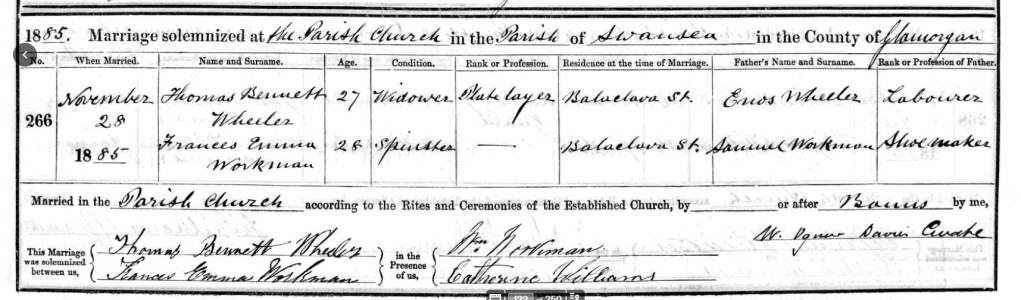 1885. Marriage solemnized at the Parish Church in the Parish of Swansea in the County of Glamorgan
No. When Married. Name and Surname. Age. Condition. Rank or Profession. Residence at the time of Marriage. Father's Name and Surname. Rank or Profession of Father.
November Thomas Bennett 27 Widower Platelayer Balaclava St. Enos Wheeler Labourer
266 28 Wheeler
1885 Frances Emma 28 Spinster — Balaclava St. Samuel Workman Shoemaker
Workman
Married in the Parish Church according to the Rites and Ceremonies of the Established Church, by or after Banns by me,
W. Davies Curate
This Marriage was solemnized between us, Thomas Bennett Wheeler in the Presence of us, Wm Workman
Frances Emma Workman Catherine Williams